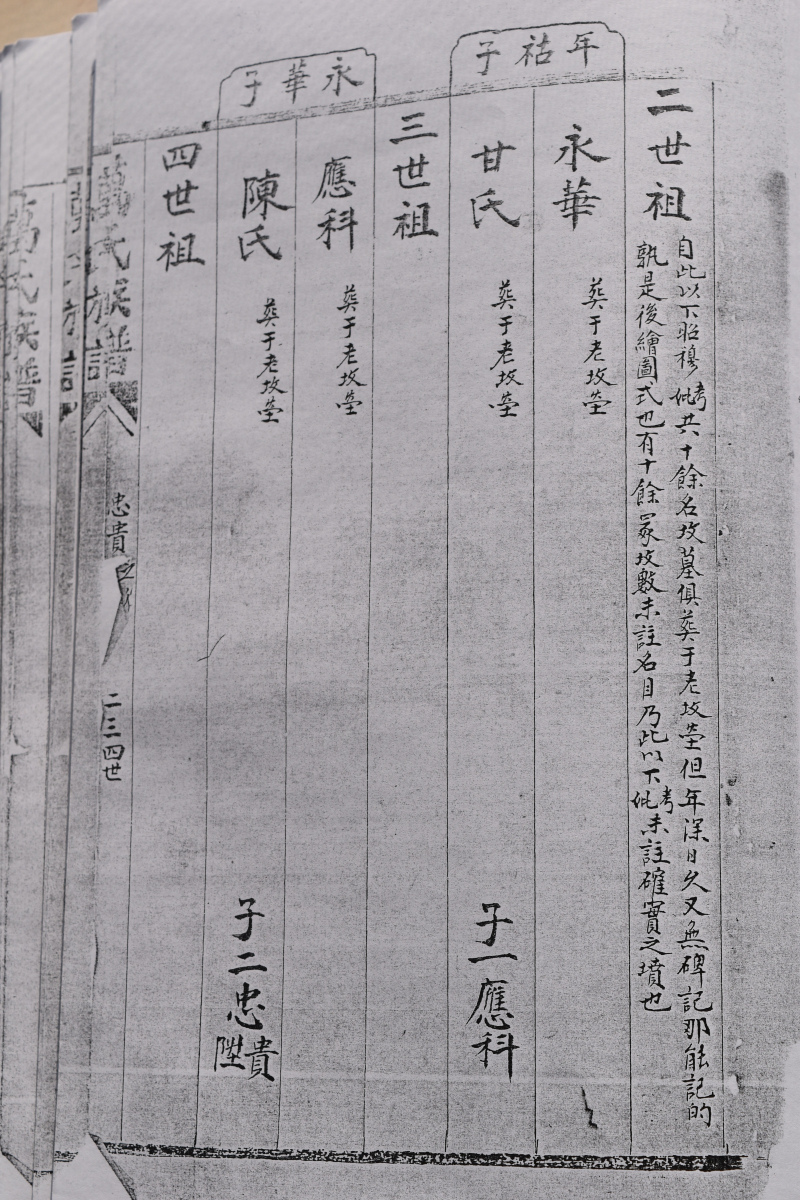 二世祖
自此以下昭穆考妣共十餘名坟墓俱葬于老坟塋但年深日久又無碑記那能記的
孰是後繪圖式也有十餘冢坟數未註名目乃此以下考妣未註確實之墳也
年祜子
永華 葬于老坟塋
甘氏 葬于老坟塋 子一應科
三世祖
永華子
應科 葬于老坟塋
陳氏 葬于老坟塋 子二忠貴陞
四世祖
萬氏族譜
忠貴
二三四世
萬氏族譜